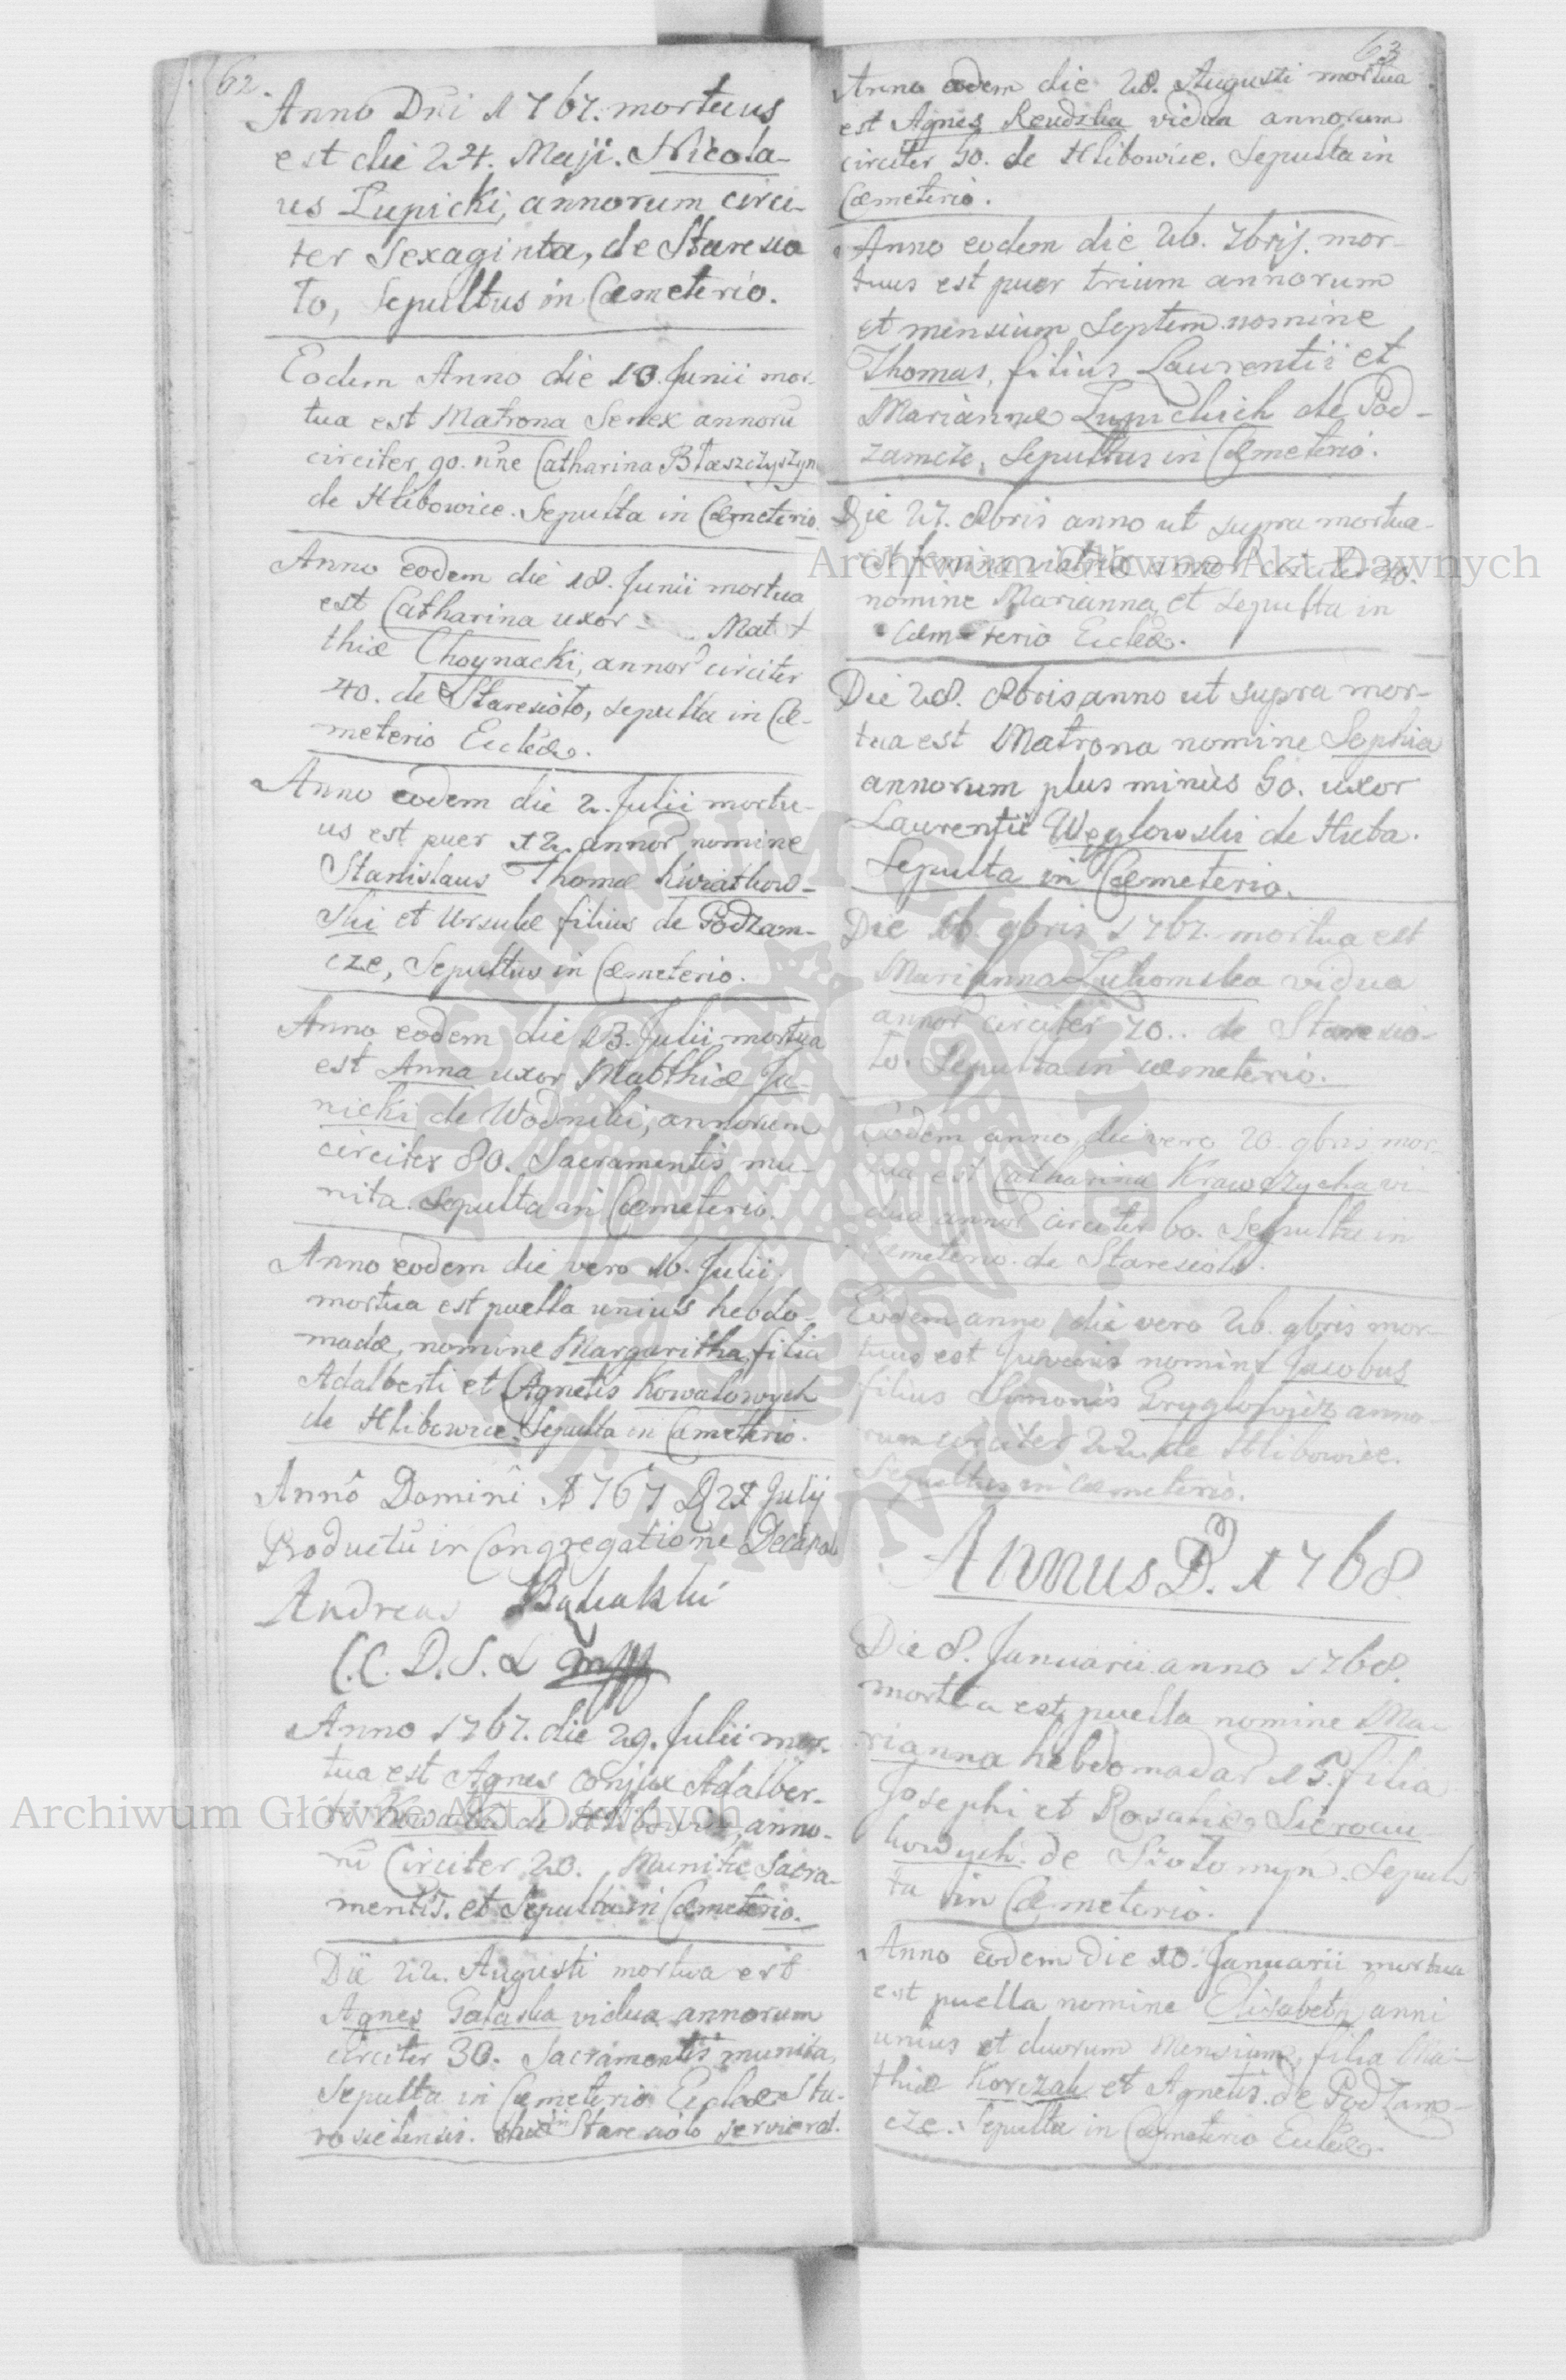 62.
Anno Dni 1767. mortuus
est die 24. Maji. Nicola-
us Lupicki, annorum circi-
ter Sexaginta, de Staresio
to, Sepultus in Cæmeterio.
Eodem Anno die 10. Junii mor-
tua est Matrona Senex annorū
circiter 90. nne Catharina Błaszczyszyn
de Hlibowice. Sepulta in Cæmeterio.
Anno eodem die 18. Junii mortua
est Catharina uxor Mat
thiæ Choynacki, annor circiter
40. de Staresioto, sepulta in Cæ-
meterio Eccleæ.
Anno eodem die 2. Julii mortu-
us est puer 12. annor nomine
Stanislaus Thomæ Kwiatkow-
ski et Ursulæ filius de Podzam-
cze, Sepultus in Cæmeterio.
Anno eodem die 13. Julii mortua
est Anna uxor Matthiæ Ju-
nicki de Wodniki, annorum
circiter 80. Sacramentis mu-
nita. Sepulta in Cæmeterio.
Anno eodem die vero 16. Julii
mortua est puella unius hebdo-
madæ, nomine Margaritha, filia
Adalberti et Agnetis Kowalowych
de Hlibowice. Sepulta in Cæmeterio.
Annô Dominî 1767 D 27 Julij
Productū in Congregatione Decanali
Andreas
C.C.D.S.L mpp
Anno 1767. die 29. Julii mor-
tua est Agnes conjux Adalber-
ti de Hlibowice, anno-
rū Circiter 20. Munita Sacra-
mentis. et Sepulta in Cæmeterio.
Die 22. Augusti mortua est
Agnes Galaska vidua annorum
circiter 30. Sacramentis munita,
Sepulta in Cæmeterio Eccleæ Sta-
rosielensis. in Staresioto servierat.
63
Anno eodem die 28. Augusti mortua
est Agnes Rendzka vidua annorum
circiter 50. de Hlibowice. Sepulta in
Cæmeterio.
Anno eodem die 26. 7brij. mor-
tuus est puer trium annorum
et mensium Septem nomine
Thomas, filius Laurentii et
Mariannæ Lupickich de Pod-
zamcze, Sepultus in Cæmeterio.
Die 27. 8bris anno ut supra mortua
est femina circiter
nomine Marianna, et sepulta in
Cæmeterio Eccleæ.
Die 28. 8bris anno ut supra mor-
tua est Matrona nomine Sophia
annorum plus minùs 50. uxor
Laurentii Węglowski de Huta.
Sepulta in Cæmeterio.
Die 16. 9bris 1767. mortua est
Marianna Lukomska vidua
annor circiter 70.. de Staresio-
to. Sepulta in cæmeterio.
Eodem anno, die vero 20. 9bris mor-
tua est Catharina Krawczycha vi-
dua annor circiter 60. Sepulta in
cæmeterio. de Staresioto.
Eodem anno, die vero 26. 9bris mor-
tuus est Juvenis nomine Jacobus
filius Simonis Gryglowicz anno-
rum circiter 22. de Hlibowice.
Sepultus in cæmeterio.
Annus D. 1768
Die 8. Januarii anno 1768.
mortua est puella nomine Ma-
rianna hebdomadar 15. filia
Josephi et Rosaliæ
de Sepul-
ta in Cæmeterio.
Anno eodem Die 10. Januarii mortua
est puella nomine Elisabeth anni
unius et duorum Mensium, filia Ma-
thiæ Korczak et Agnetis. de Podzam-
cze. Sepulta in Cæmeterio Eccleæ.
Archiwum Główne Akt Dawnych
Archiwum Główne Akt Dawnych
ARCHIWUM GŁÓWNE AKT DAWNYCH